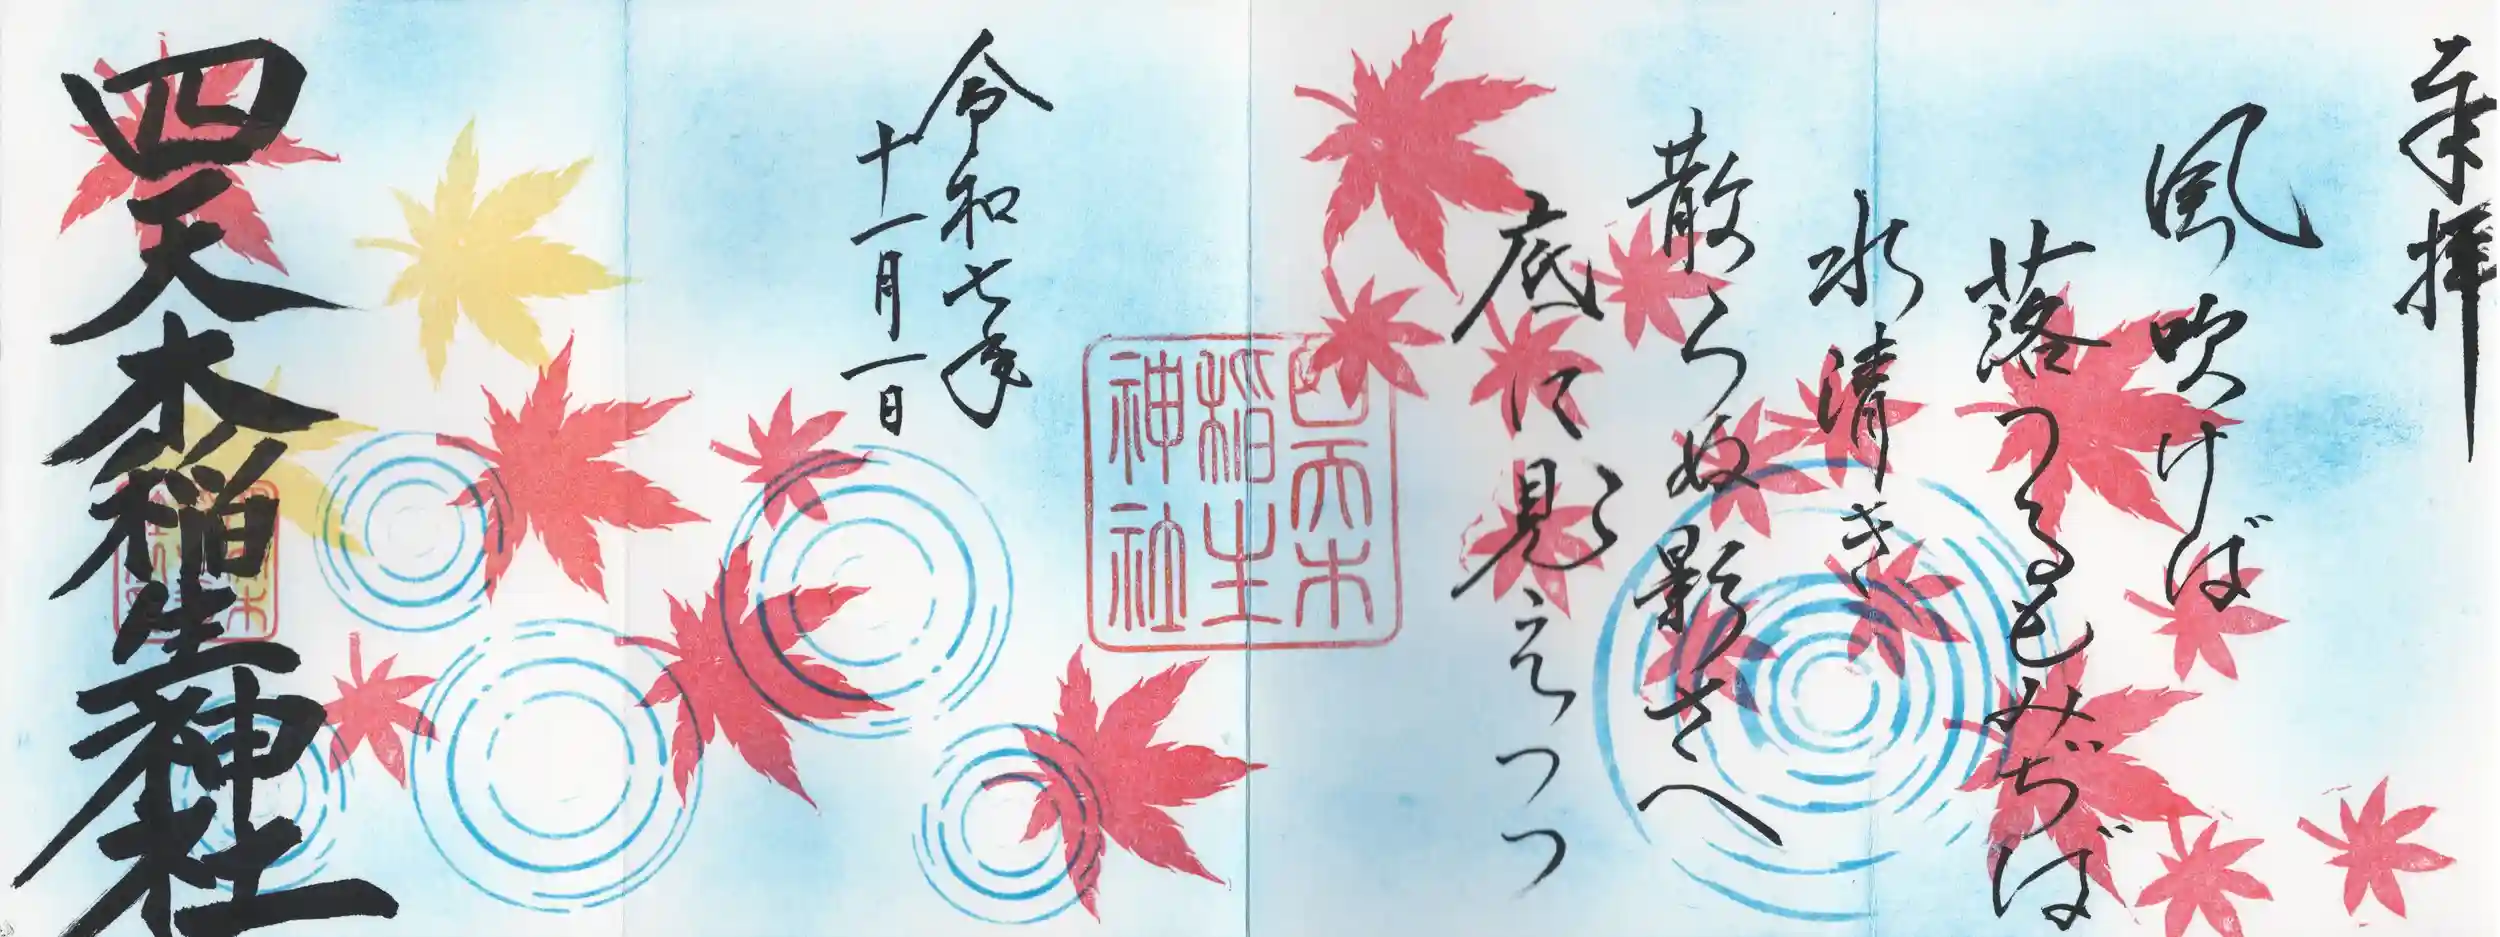 奉拝
風吹けば
落つるもみぢば
水清き
散らぬ影さへ
底に見えつつ
四天木
稲生
神社
令和七年
十一月一日
四天木稲生神社